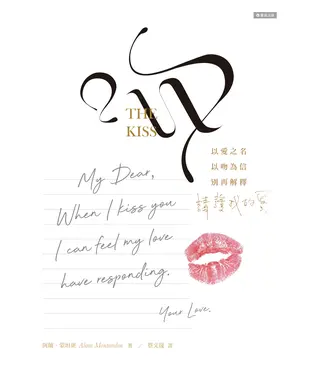 THE
KISS
以愛之名
以吻為信
別再解釋
請讀我的
My Dear,
When I kiss you
I can feel my love
have responding.
Your Love.
阿蘭・蒙坦東 Alain Montandon 著 / 譯